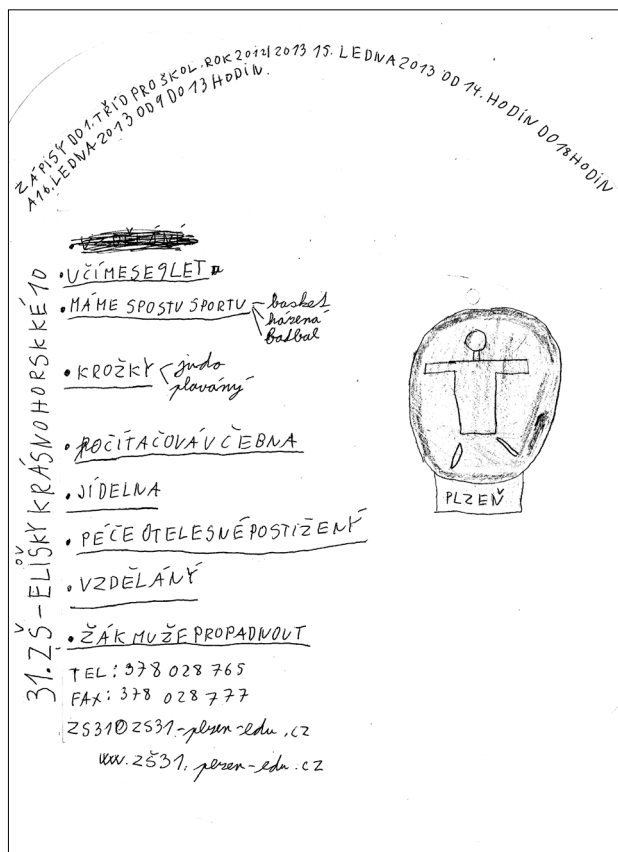 ZÁPISY DO 1. TŘÍD PRO ŠKOL. ROK 2012/2013 15. LEDNA 2013 OD 14. HODIN DO 18 HODIN
A 16. LEDNA 2013 OD 9 DO 13 HODIN.
31. ZŠ - ELIŠKY KRÁSNOHORSKKÉ 10
OV
• UČÍME SE 9 LET
• MÁME SPOSTU SPORTU
basket
házená
fodbal
• KROŽKY
judo
plaváný
• POČÍTAČOVÁ UČEBNA
• JÍDELNA
• PÉČE O TELESNÉ POSTIŽENÝ
• VZDĚLÁNÝ
• ŽÁK MUŽE PROPADNOUT
TEL: 378 028 765
FAX: 378 028 777
ZS31@ZS31.-plzen-edu.cz
www.ZŠ31.plzen-edu.cz
PLZEŇ